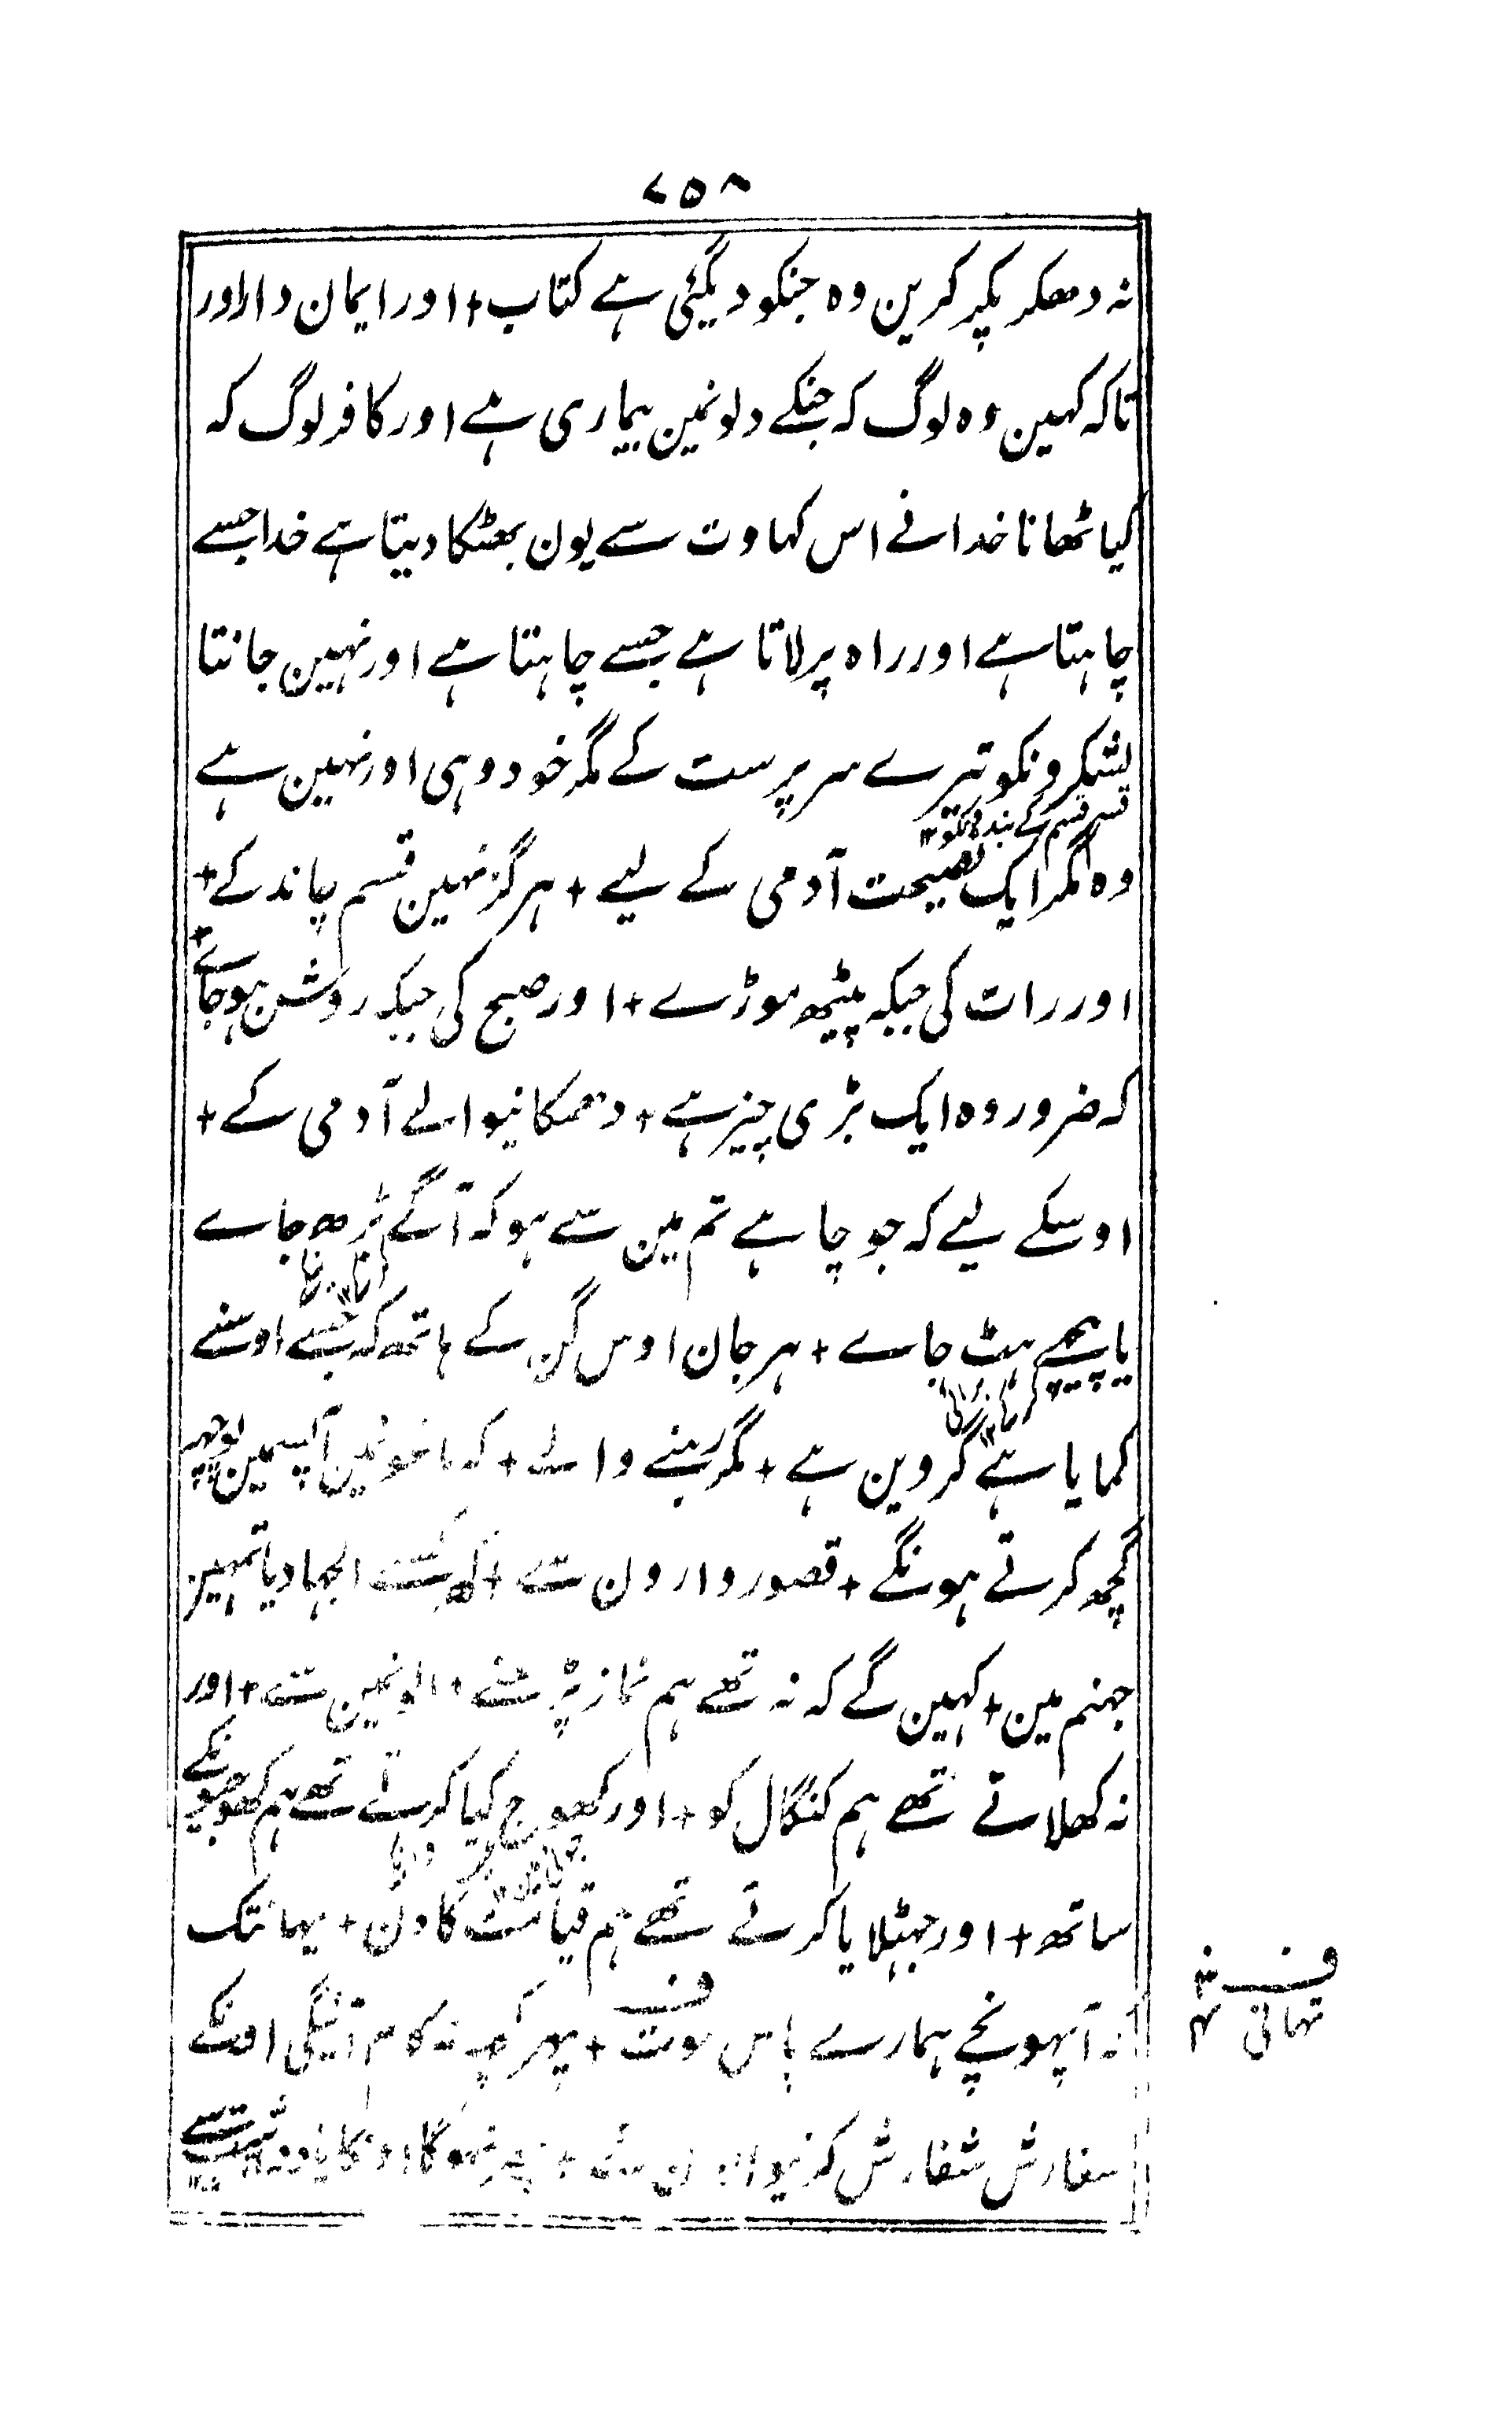 ۷۵۸
نہ دھکر پکر کرین وہ جنکو دیگئی ہے کتاب + اور ایمان دار اور
تاکہ کہین وہ لوگ کہ جنکے دلونمین بیماری ہے اور کافر لوگ کہ
کیا ٹھانا خدا نے اس کہاوت سے یون بھٹکا دیتا ہے خدا جسے
چاہتا ہے اور راہ پر لاتا ہے جسے چاہتا ہے اور نہین جانتا
لشکرونکو تیرے سرپرست کے مگر خود وہی اور نہین ہے
قسم قسم کے بندونکو ۱۲
وہ مگر ایک نصیحت آدمی کے لیے + ہرگز نہین قسم چاند کے +
اور رات کی جبکہ پیٹھ موڑے + اور صبح کی جبکہ روشن ہو جاے +
کہ ضرور وہ ایک بڑی چیز ہے + دھمکانیوالے آدمی کے +
اوسکے لیے کہ جو چاہے تم مین سے ہو کہ آگے بڑھ جاے
یا پیچھے ہٹ جاے + ہر جان اوس گن کے ہاتھ کہ جسے اوسنے
کمایا ہے گروین ہے + مگر رہنے والے + کہ باغونمین آپسمین پوچھہ
گچھ کرتے ہونگے + قصور وارون سے + کہ کسنے الجھا دیا تمہین
جہنم مین + کہین گے کہ نہ تھے ہم نماز پڑھنے والونمین سے + اور
نہ کھلاتے تھے ہم کنگال کو + اور کھوج کیا کرتے تھے ہم کھوجیونکے
ساتھ + اور جھٹلایا کرتے تھے ہم قیامت کا دن + یہانتک
کہ آپہونچے ہمارے پاس موت + پھر کچھ نہ کام آئیگی اونکے
سفارش شفارش کرنیوالونکی
ف
تہائی